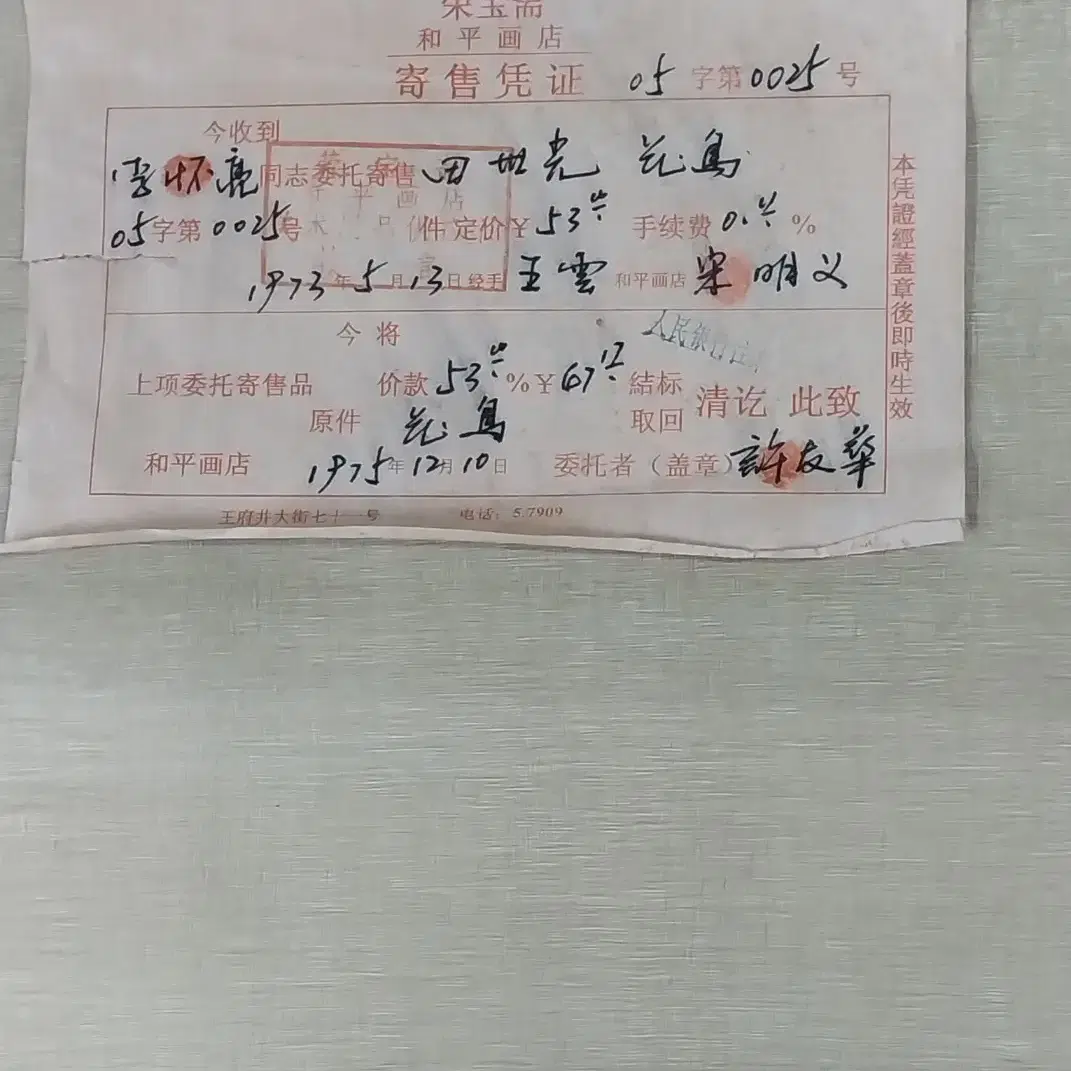 荣宝斋
和平画店
寄售凭证 05字第0025号
今收到
李怀亮同志委托寄售田世光花鸟
05字第0025号 件定价¥53 手续费0. %
1973年5月13日经手王雲 和平画店 宋明义
今将
上项委托寄售品 价款53 %¥67 結标
原件花鸟 取回 清讫 此致
和平画店 1975年12月10日 委托者(盖章)許友華
本凭證經蓋章後即時生效
人民銀行
王府井大街七十一号 电话:5.7909